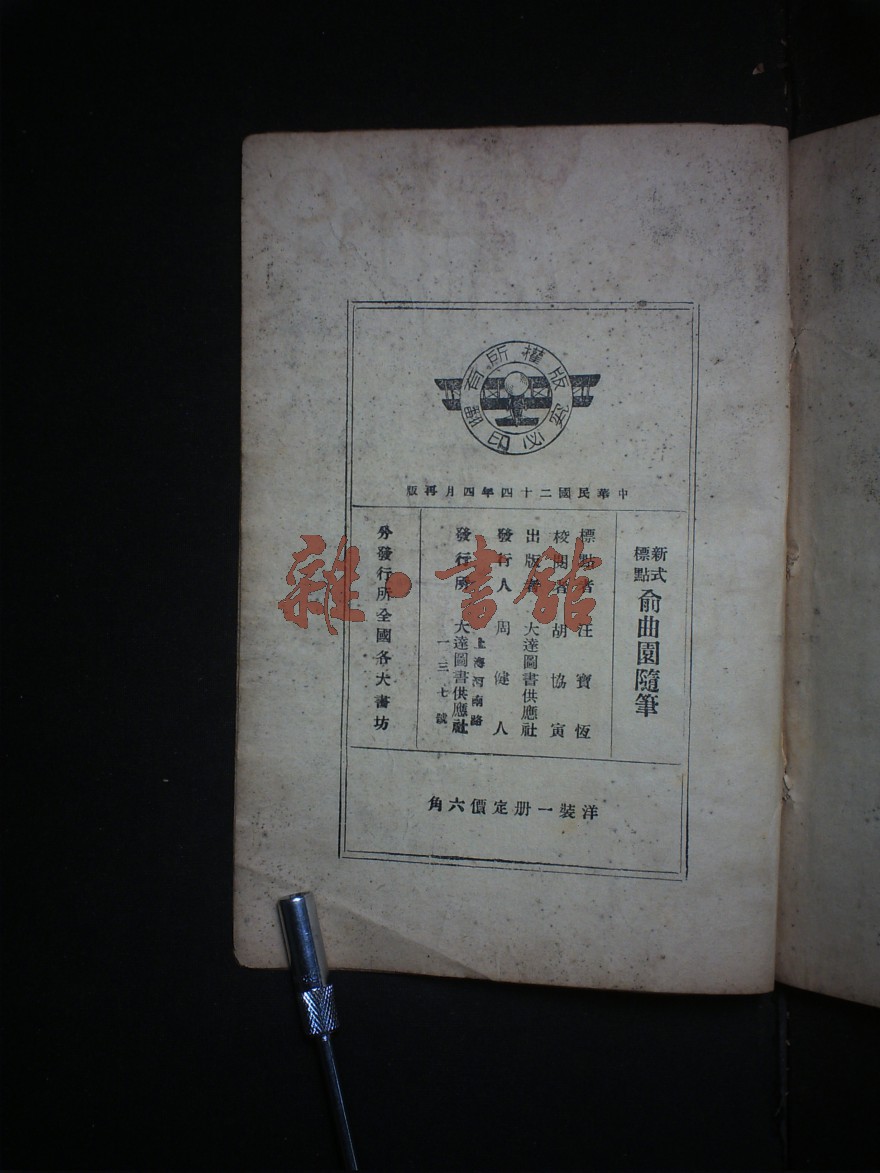 版權所有
翻印必究
中華民國二十四年四月再版
新式標點 俞曲園隨筆
標點者 汪寶恆
校閱者 胡協寅
出版者 大達圖書供應社
發行人 周健人
發行所 上海河南路一三七號 大達圖書供應社
分發行所全國各大書坊
洋裝一册定價六角
雜·書館